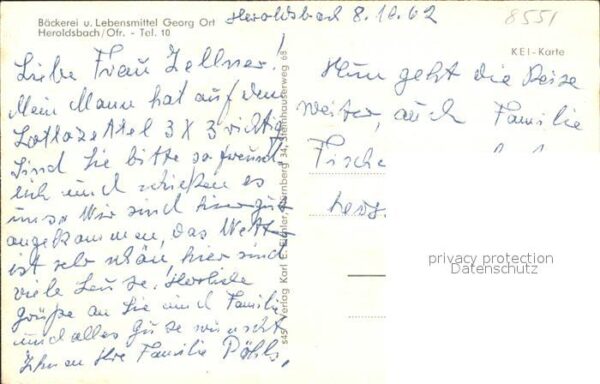 Bäckerei u. Lebensmittel Georg Ort
Heroldsbach/Ofr. - Tel. 10
Heroldsbach 8.10.62
8551
KEI-Karte
Liebe Frau Zellner!
Mein Mann hat auf dem
Lottozettel 3 x 3 richtig
Sind Sie bitte so freund-
lich und schicken es
uns. Wir sind hier gut
angekommen, das Wetter
ist sehr schön hier sind
viele Leute. Herzliche
Grüße an Sie und Familie
und alles Gute wünscht
Ihnen Ihre Familie Pöhls,
Nun geht die Reise
weiter, auch Familie
Fische
s45 Verlag Karl E. Nürnberg 34, Steinhauserweg 68
privacy protection
Datenschutz